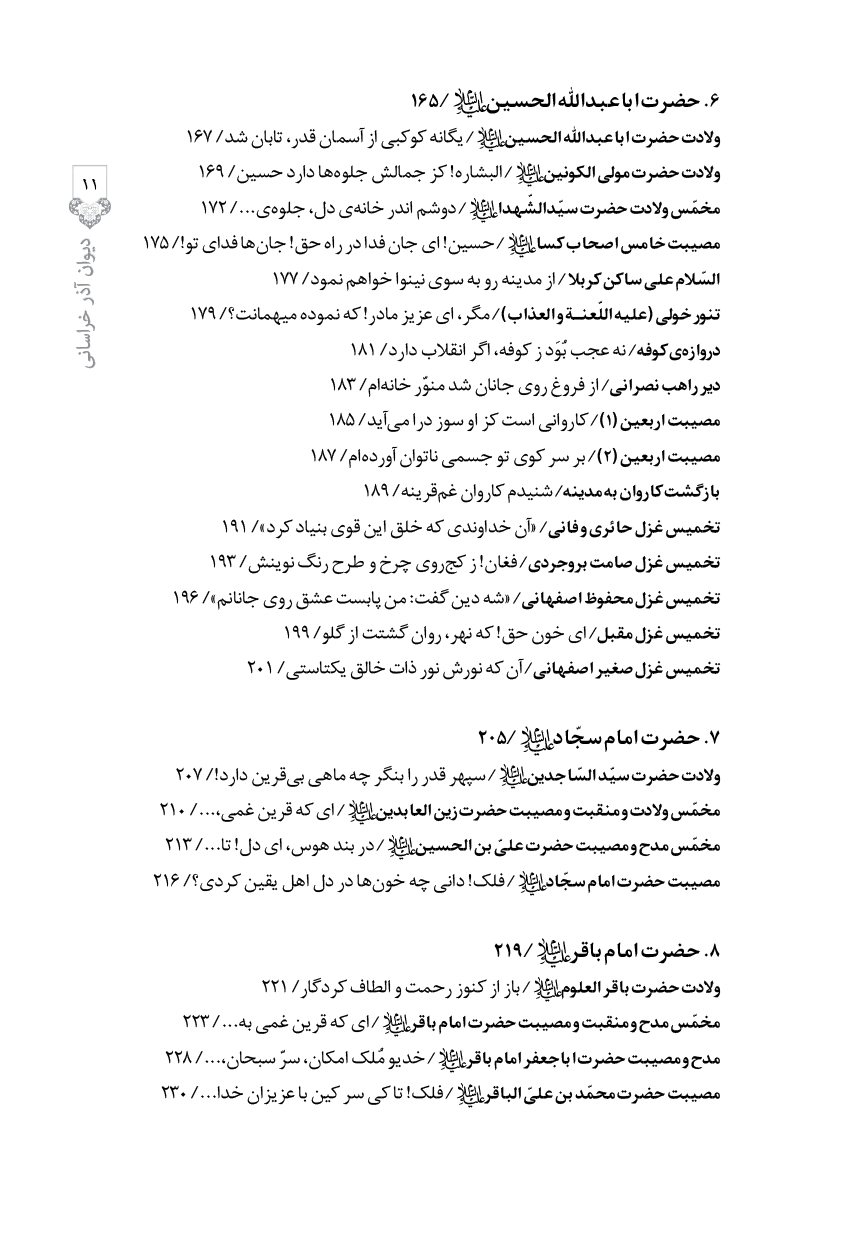 ۶. حضرت ابا عبدالله الحسین علیه‌السلام / ۱۶۵
ولادت حضرت ابا عبدالله الحسین علیه‌السلام / یگانه کوکبی از آسمان قدر، تابان شد / ۱۶۷
ولادت حضرت مولی الکونین علیه‌السلام / البشاره! کز جمالش جلوه‌ها دارد حسین / ۱۶۹
مخمّس ولادت حضرت سیّدالشّهدا علیه‌السلام / دوشم اندر خانه‌ی دل، جلوه‌ی... / ۱۷۲
مصیبت خامس اصحاب کسا علیه‌السلام / حسین! ای جان فدا در راه حق! جان‌ها فدای تو! / ۱۷۵
السّلام علی ساکن کربلا / از مدینه رو به سوی نینوا خواهم نمود / ۱۷۷
تنور خولی (علیه اللّعنـة و العذاب) / مگر، ای عزیز مادر! که نموده میهمانت؟ / ۱۷۹
دروازه‌ی کوفه / نه عجب بُوَد ز کوفه، اگر انقلاب دارد / ۱۸۱
دیر راهب نصرانی / از فروغ روی جانان شد منوّر خانه‌ام / ۱۸۳
مصیبت اربعین (۱) / کاروانی است کز او سوز درا می‌آید / ۱۸۵
مصیبت اربعین (۲) / بر سر کوی تو جسمی ناتوان آورده‌ام / ۱۸۷
بازگشت کاروان به مدینه / شنیدم کاروان غم‌قرینه / ۱۸۹
تخمیس غزل حائری وفانی / «آن خداوندی که خلق این قوی بنیاد کرد» / ۱۹۱
تخمیس غزل صامت بروجردی / فغان! ز کج‌روی چرخ و طرح رنگ نوینش / ۱۹۳
تخمیس غزل محفوظ اصفهانی / «شه دین گفت: من پابست عشق روی جانانم» / ۱۹۶
تخمیس غزل مقبل / ای خون حق! که نهر، روان گشتت از گلو / ۱۹۹
تخمیس غزل صغیر اصفهانی / آن که نورش نور ذات خالق یکتاستی / ۲۰۱
۷. حضرت امام سجّاد علیه‌السلام / ۲۰۵
ولادت حضرت سیّد السّاجدین علیه‌السلام / سپهر قدر را بنگر چه ماهی بی‌قرین دارد! / ۲۰۷
مخمّس ولادت و منقبت و مصیبت حضرت زین العابدین علیه‌السلام / ای که قرین غمی،... / ۲۱۰
مخمّس مدح و مصیبت حضرت علیّ بن الحسین علیه‌السلام / در بند هوس، ای دل! تا... / ۲۱۳
مصیبت حضرت امام سجّاد علیه‌السلام / فلک! دانی چه خون‌ها در دل اهل یقین کردی؟ / ۲۱۶
۸. حضرت امام باقر علیه‌السلام / ۲۱۹
ولادت حضرت باقر العلوم علیه‌السلام / باز از کنوز رحمت و الطاف کردگار / ۲۲۱
مخمّس مدح و منقبت و مصیبت حضرت امام باقر علیه‌السلام / ای که قرین غمی به... / ۲۲۳
مدح و مصیبت حضرت ابا جعفر امام باقر علیه‌السلام / خدیو مُلک امکان، سرّ سبحان،... / ۲۲۸
مصیبت حضرت محمّد بن علیّ الباقر علیه‌السلام / فلک! تا کی سر کین با عزیزان خدا... / ۲۳۰
۱۱
دیوان آذر خراسانی